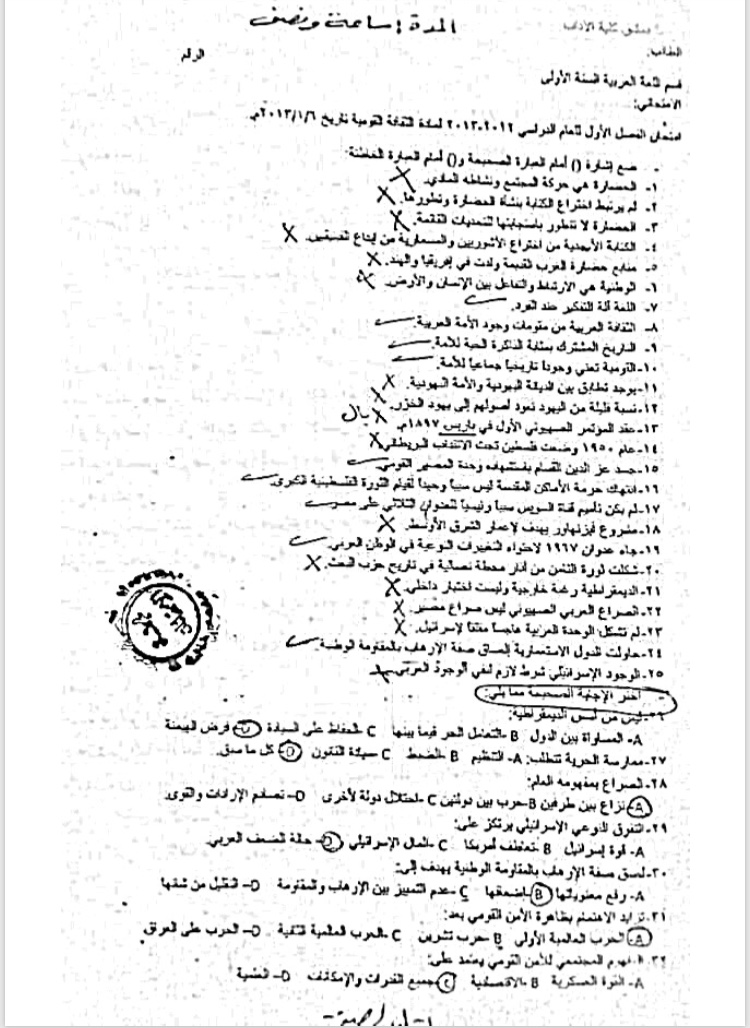 المدة: ساعة ونصف
دمشق كلية الآداب
الطالب:
الرقم
قسم اللغة العربية السنة الأولى
الامتحاني:
امتحان الفصل الأول للعام الدراسي ٢٠١٢-٢٠١٣ لمادة الثقافة القومية تاريخ ٢٠١٣/١/٦م
- ضع إشارة () أمام العبارة الصحيحة و() أمام العبارة الخاطئة:
١- الحضارة هي حركة المجتمع ونشاطه المادي. X
٢- لم يرتبط اختراع الكتابة بنشأة الحضارة وتطورها. X
٣- الحضارة لا تتطور باستجابتها للتحديات القائمة. X
٤- الكتابة الأبجدية من اختراع الآشوريين والمسمارية من إبداع الفينيقيين. X
٥- منابع حضارة العرب القديمة ولدت في إفريقيا والهند. X
٦- الوطنية هي الارتباط والتفاعل بين الإنسان والأرض. X
٧- اللغة آلة التفكير عند الفرد. ✓
٨- الثقافة العربية من مقومات وجود الأمة العربية. ✓
٩- التاريخ المشترك بمثابة الذاكرة الحية للأمة. ✓
١٠- القومية تعني وجوداً تاريخياً جماعياً للأمة. ✓
١١- يوجد تطابق بين الديانة اليهودية والأمة اليهودية. X
١٢- نسبة قليلة من اليهود تعود أصولهم إلى يهود الخزر. X
١٣- عقد المؤتمر الصهيوني الأول في باريس ١٨٩٧م. X بال
١٤- عام ١٩٥٠ وضعت فلسطين تحت الانتداب البريطاني. X
١٥- جسد عز الدين القسام باستشهاده وحدة المصير القومي. ✓
١٦- انتهاك حرمة الأماكن المقدسة ليس سبباً وحيداً لقيام الثورة الفلسطينية الكبرى. ✓
١٧- لم يكن تأميم قناة السويس سبباً رئيسياً للعدوان الثلاثي على مصر. ✓
١٨- مشروع ايزنهاور يهدف لإعمار الشرق الأوسط. X
١٩- جاء عدوان ١٩٦٧ لاحتواء التغيرات النوعية في الوطن العربي. ✓
٢٠- شكلت ثورة الثامن من آذار محطة نضالية في تاريخ حزب البعث. X
٢١- الديمقراطية رغبة خارجية وليست اختيار داخلي. X
٢٢- الصراع العربي الصهيوني ليس صراع مصير. X
٢٣- لم تشكل الوحدة العربية هاجساً مقلقاً لإسرائيل. X
٢٤- حاولت الدول الاستعمارية إلصاق صفة الإرهاب بالمقاومة الوطنية. ✓
٢٥- الوجود الإسرائيلي شرط لازم لنفي الوجود العربي. X
- اختر الإجابة الصحيحة مما يلي:
٢٦- ليس من أسس الديمقراطية:
A- المساواة بين الدول B- التعامل الحر فيما بينها C- الحفاظ على السيادة D- فرض الهيمنة
٢٧- ممارسة الحرية تتطلب: A- التنظيم B- الضبط C- سيادة القانون D- كل ما سبق
٢٨- الصراع بمفهومه العام:
A- نزاع بين طرفين B- حرب بين دولتين C- احتلال دولة لأخرى D- تصادم الإرادات والقوى
٢٩- التفوق النوعي الإسرائيلي يرتكز على:
A- قوة إسرائيل B- تعاطف أمريكا C- المال الإسرائيلي D- حالة الضعف العربي
٣٠- لصق صفة الإرهاب بالمقاومة الوطنية يهدف إلى:
A- رفع معنوياتها B- إضعافها C- عدم التمييز بين الإرهاب والمقاومة D- التقليل من شأنها
٣١- تزايد الاهتمام بظاهرة الأمن القومي بعد:
A- الحرب العالمية الأولى B- حرب تشرين C- الحرب العالمية الثانية D- الحرب على العراق
٣٢- المفهوم المجتمعي للأمن القومي يعتمد على:
A- القوة العسكرية B- الاقتصادية C- جميع القدرات والإمكانات D- العلمية